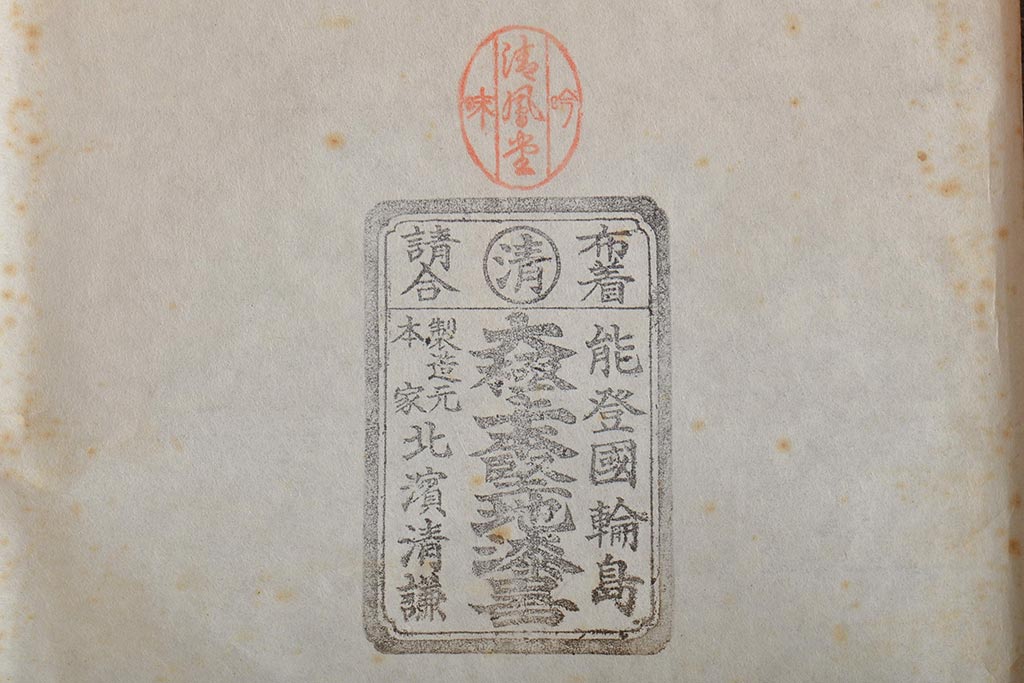 清風堂
吟味
布着
清
請合
能登國輪島
大極上本堅地漆器
製造元
本家
北濱清謙